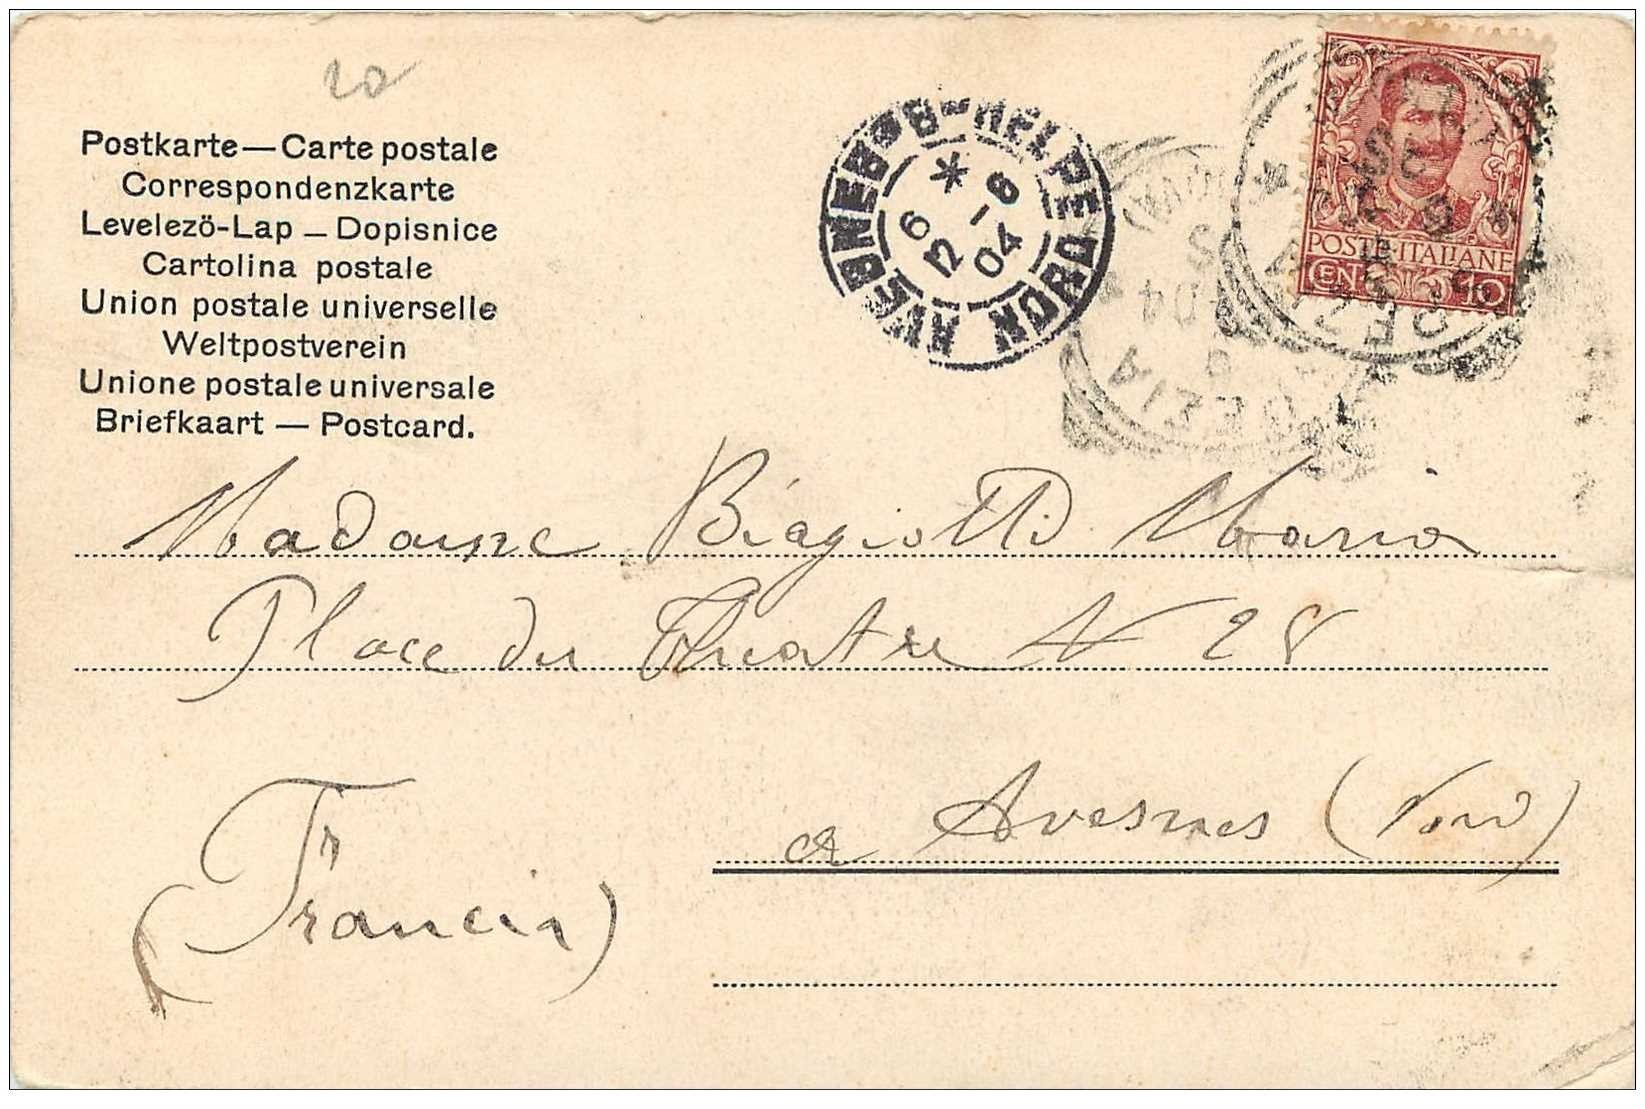 20
Postkarte — Carte postale
Correspondenzkarte
Levelezö-Lap — Dopisnice
Cartolina postale
Union postale universelle
Weltpostverein
Unione postale universale
Briefkaart — Postcard.
AVESNES-S-HELPE NORD
6 * 12 -6 04
POSTE ITALIANE
CEN 10
04
Madame Biagiotti Maria
Place du Theatre N 28
a Avesnes (Nord)
(Francia)